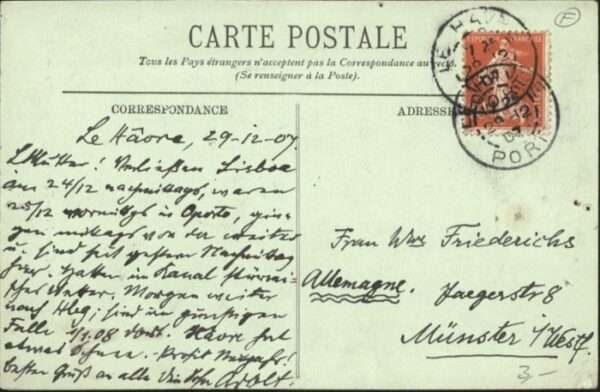 CARTE POSTALE
Tous les Pays étrangers n'acceptent pas la Correspondance au recto.
(Se renseigner à la Poste).
CORRESPONDANCE
ADRESSE
LE HAVRE
PORT
Le Hâvre, 29-12-07.
L. Mutter! Verließen Lisboa
am 24/12 nachmittags, waren
25/12 vormittgs in Oporto, gin-
gen mittags von da weiter
u. sind seit gestern Nachmittag
hier. Hatten im Kanal stürmi-
sches Wetter. Morgen weiter
nach Hbg; sind im günstigen
Falle 1/1.08 dort. Hâvre hat
etwas Schnee. Prosit Neujahr!
besten Gruß an alle
Adolf.
Frau Wwe Friederichs
Allemagne.
Jaegerstr 8
Münster i/Westf.
3-
F